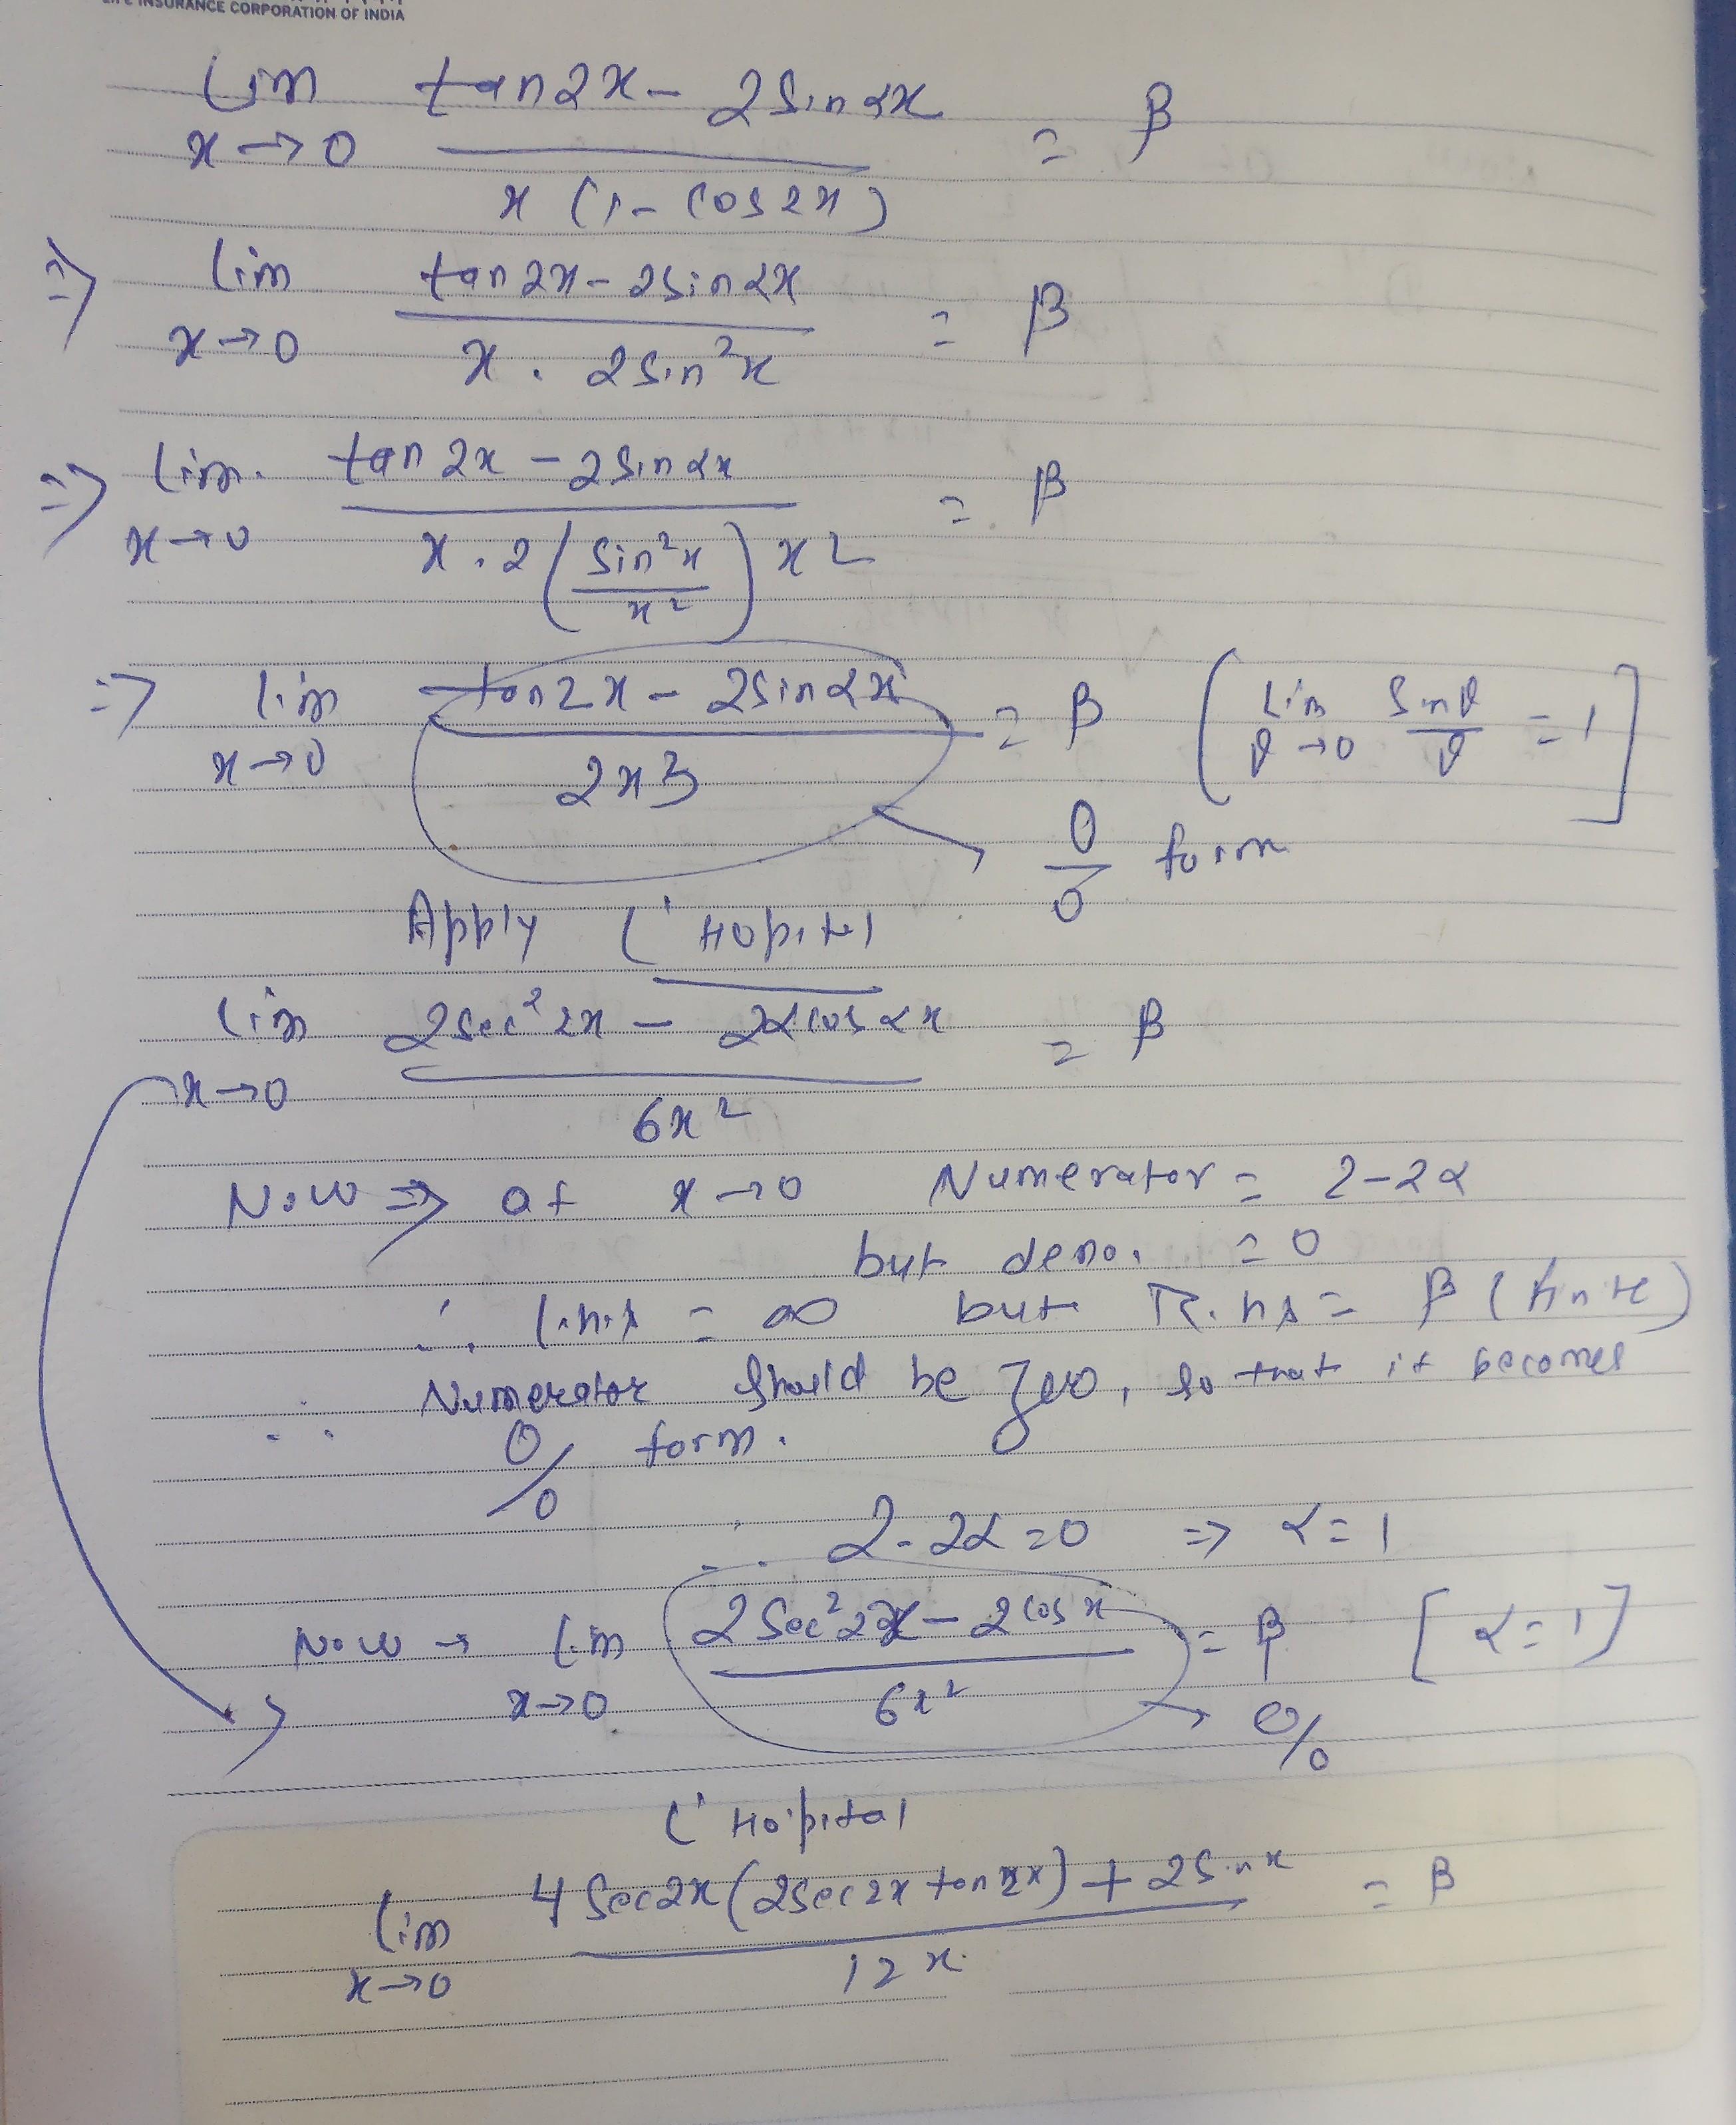 LIFE INSURANCE CORPORATION OF INDIA
Lim x→0 (tan2x - 2sinαx) / (x(1 - cos2x)) = β
⇒ lim x→0 (tan2x - 2sinαx) / (x . 2sin²x) = β
⇒ lim x→0 (tan2x - 2sinαx) / (x . 2(sin²x/x²) x²) = β
⇒ lim x→0 (tan2x - 2sinαx) / (2x³) = β [Lim θ→0 Sinθ/θ = 1]
0/0 form
Apply L'Hopital
lim x→0 (2sec²2x - 2αcosαx) / (6x²) = β
Now ⇒ at x→0 Numerator = 2-2α
but deno. = 0
∴ L.h.s = ∞ but R.hs = β (finite)
∴ Numerator should be zero, so that it becomes
0/0 form.
∴ 2-2α=0 ⇒ α=1
Now → lim x→0 (2Sec²2x - 2cosx) / (6x²) = β [α=1]
0/0
L'Hopital
lim x→0 (4Sec2x(2Sec2x tan2x) + 2Sinx) / (12x) = β